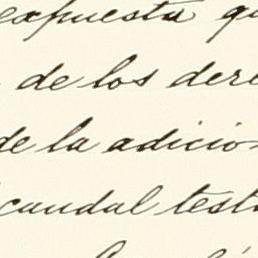 expuesta qu
de los dere
de la adicio
caudal testa